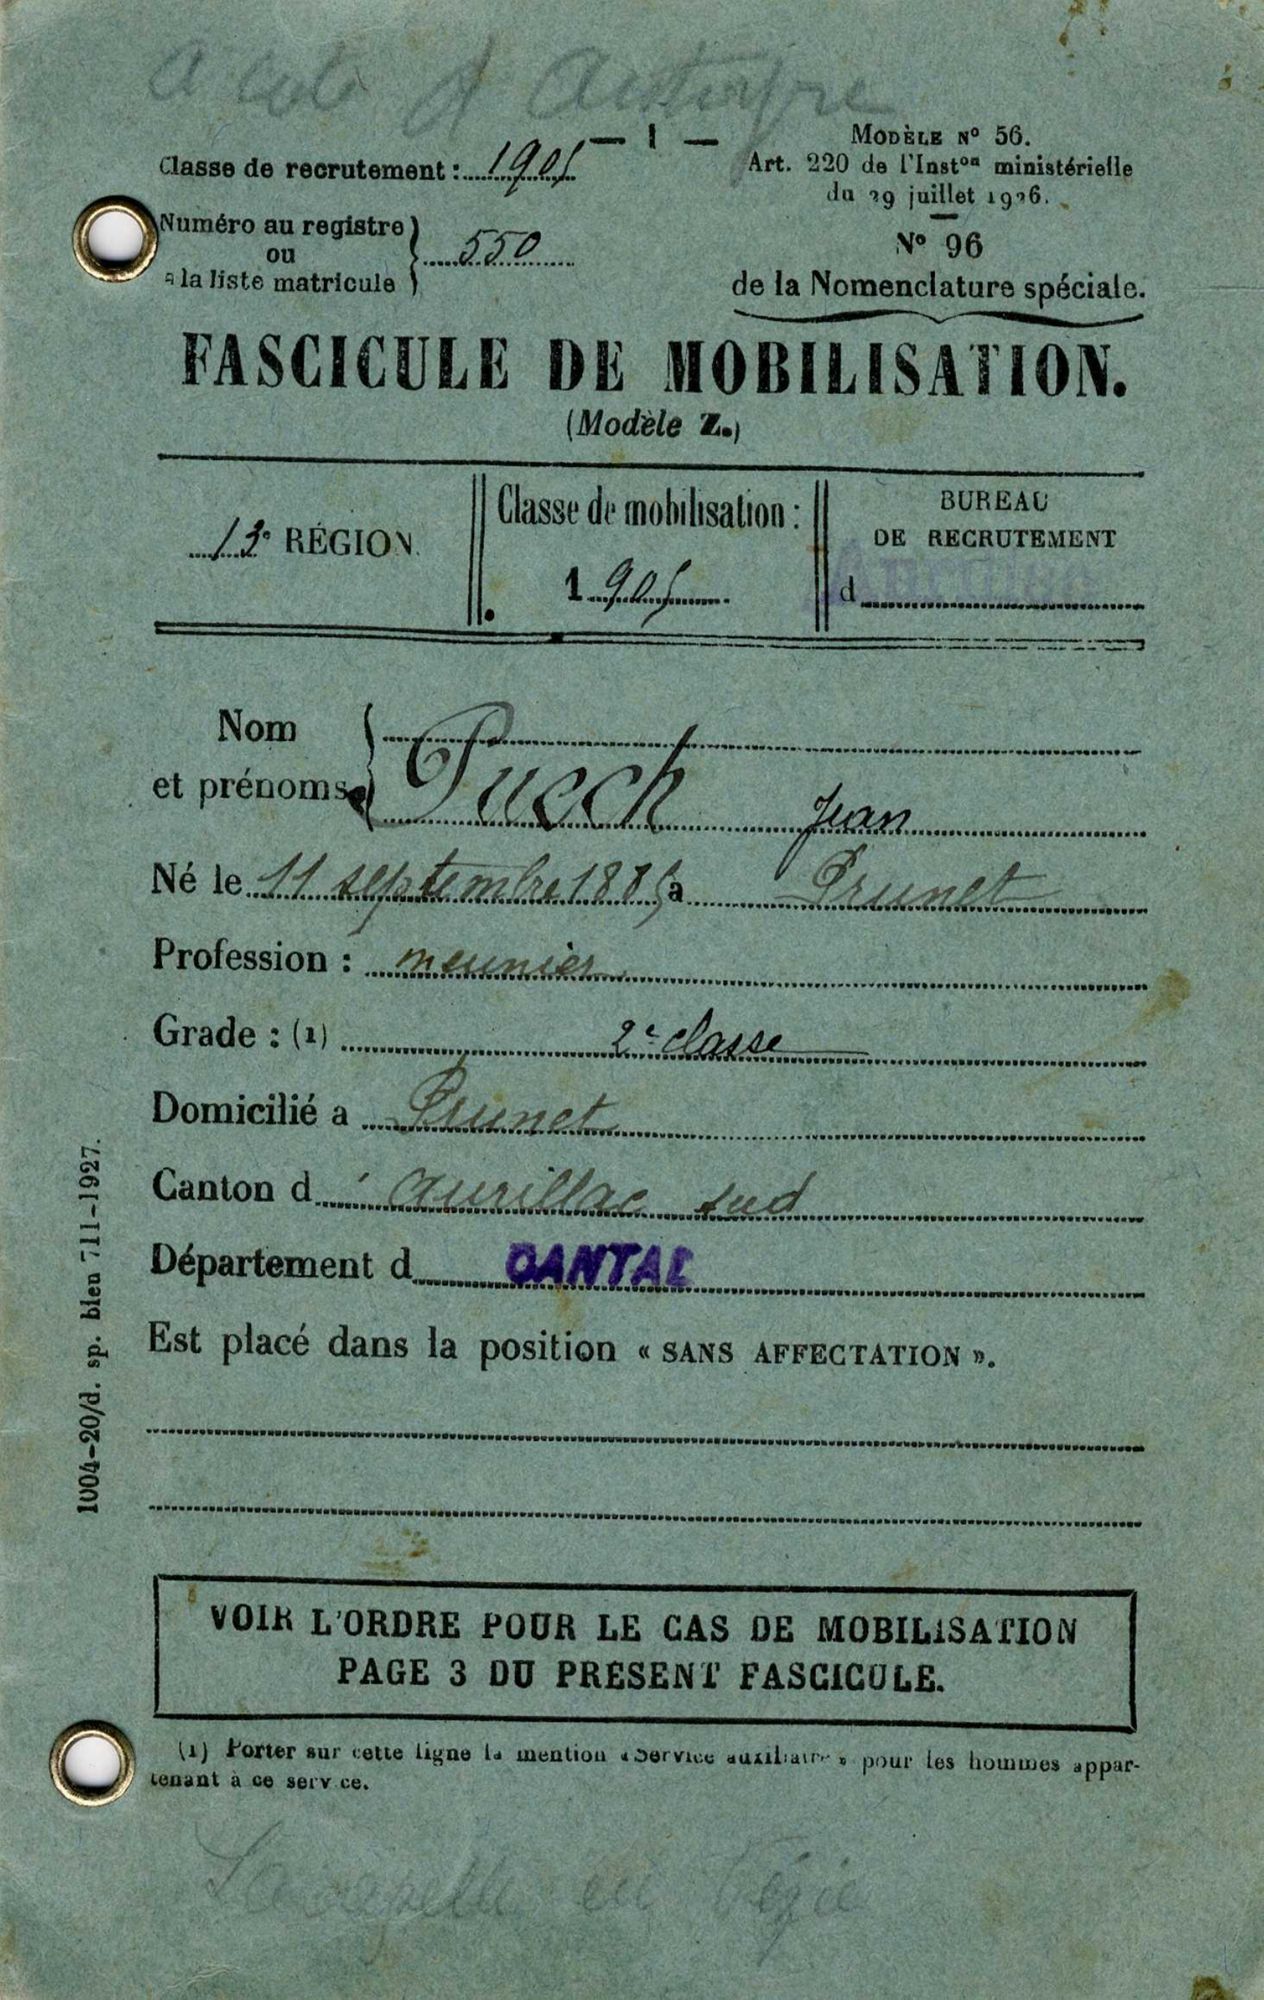 — 1 —
Classe de recrutement : 1905
MODÈLE Nº 56.
Art. 220 de l'Inst<sup>on</sup> ministérielle
du 29 juillet 1926.
Numéro au registre
ou
à la liste matricule } 550
Nº 96
de la Nomenclature spéciale.
FASCICULE DE MOBILISATION.
(Modèle Z.)
13e RÉGION.
Classe de mobilisation :
1905
BUREAU
DE RECRUTEMENT
d Aurillac
Nom
et prénoms } Puech Jean
Né le 11 septembre 1885 a Prunet
Profession : meunier
Grade : (1) 2e classe
Domicilié a Prunet
Canton d'aurillac sud
Département d CANTAL
Est placé dans la position « SANS AFFECTATION ».
1004-20/d. sp. bleu 711-1927.
VOIR L'ORDRE POUR LE CAS DE MOBILISATION
PAGE 3 DU PRÉSENT FASCICULE.
(1) Porter sur cette ligne la mention « Service auxiliaire » pour les hommes appar-
tenant à ce service.
Lacapelle en Vézie